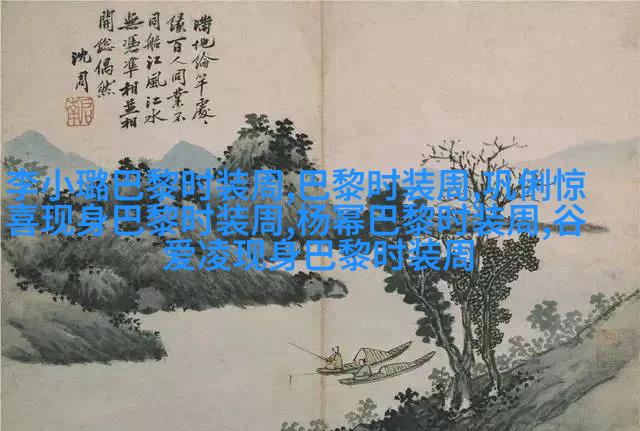 滿地綸竿處〻
緣百人同業不
同船江風江水
無憑準相並相
開總偶然
沈周
李小璐巴黎时装周,巴黎时装周,巩俐惊
喜现身巴黎时装周,杨幂巴黎时装周,谷
爱凌现身巴黎时装周